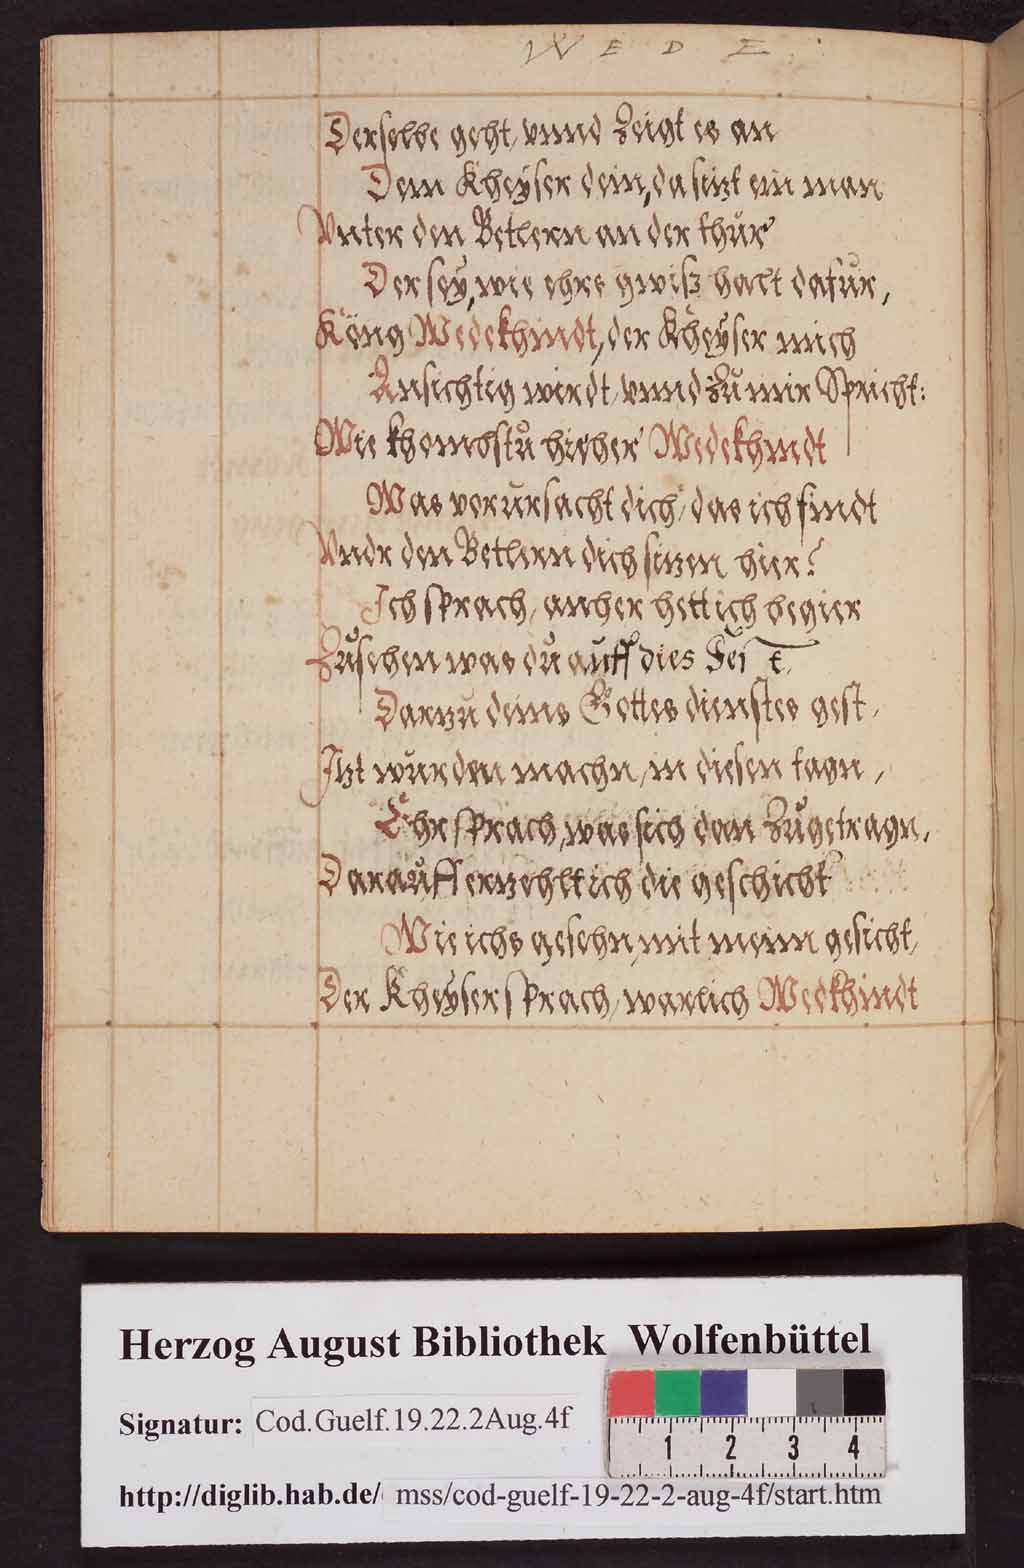 W E D E
Derselbe geht, vnnd Zeigt es an
Dem Kheÿser dein, da sitzt ein man
Vnter den Betlern an der thür
Der seÿ, wie ehrs gwisz halt dafür,
König Wedekhindt, der Kheÿser mich
Ansichtig wirdt, vnnd Zů mir Spricht:
Wie khombstů hieher Wedekhindt
Was verursacht dich, das ich findt
Vndr den Betlern dich sitzen hier?
Ich sprach, anher hett ich begier
Zůsehen was dů aůff dies Fest,
Darzu deins Gottes dienstes gest,
Itzt würden machn, in diesen tagn,
Ehr sprach, was sich dan Zůgetragn.
Daraůff erzehlt ich die geschicht
Wie ichs gesehn, mit meim gesicht,
Der Kheÿser sprach, warlich Wedkhindt
Herzog August Bibliothek Wolfenbüttel
Signatur: Cod.Guelf.19.22.2Aug.4f
1 2 3 4
http://diglib.hab.de/ mss/cod-guelf-19-22-2-aug-4f/start.htm